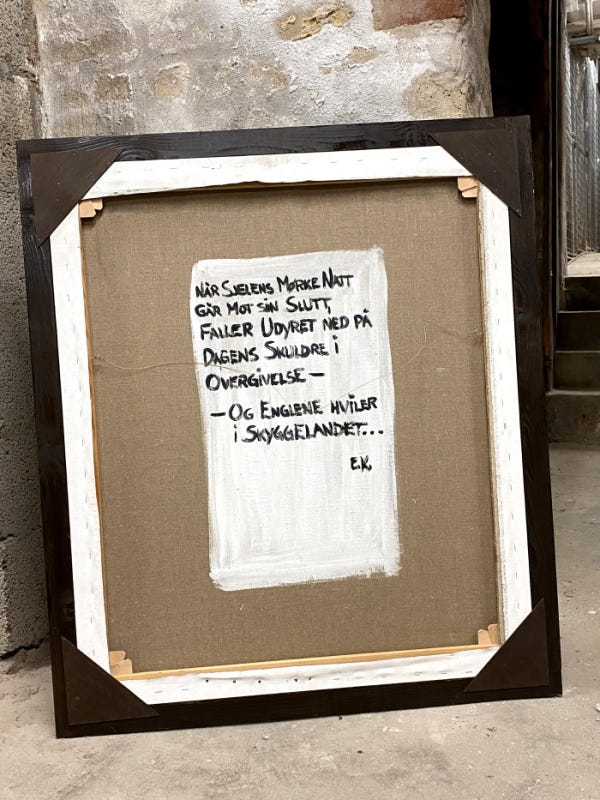 NÅR SJELENS MØRKE NATT
GÅR MOT SIN SLUTT,
FALLER UDYRET NED PÅ
DAGENS SKULDRE I
OVERGIVELSE —
— OG ENGLENE HVILER
I SKYGGELANDET...
E.K.